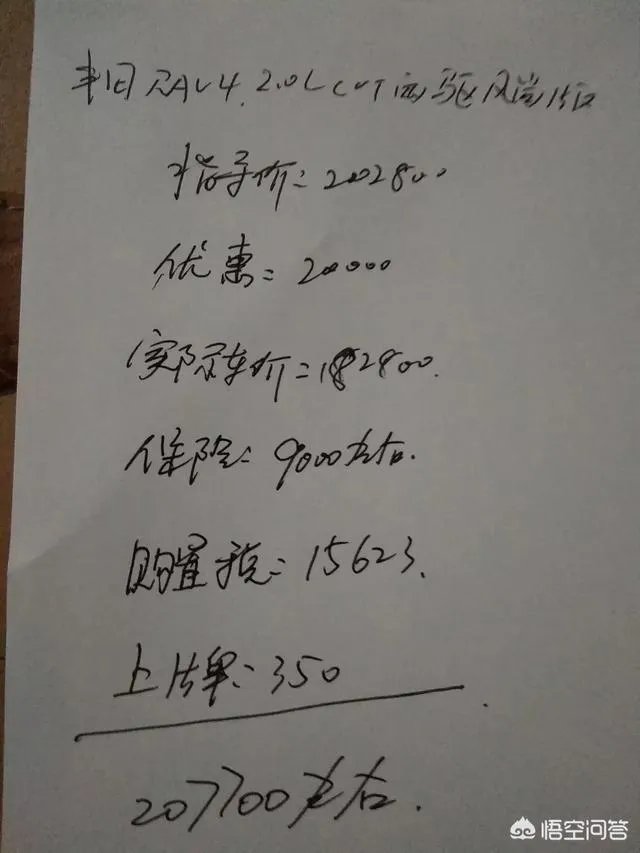 丰田RAV4.2.0L CVT两驱风尚版
指导价:202800
优惠:20000
实际车价:182800.
保险:9000左右.
购置税:15623.
上牌:350
207700左右.
悟空问答